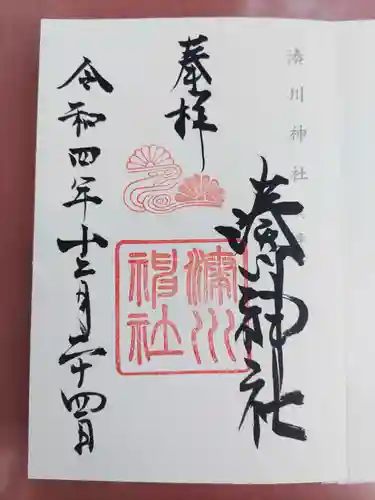 湊川神社
奉拝
湊川神社
湊川
神社
令和四年十二月二十四日